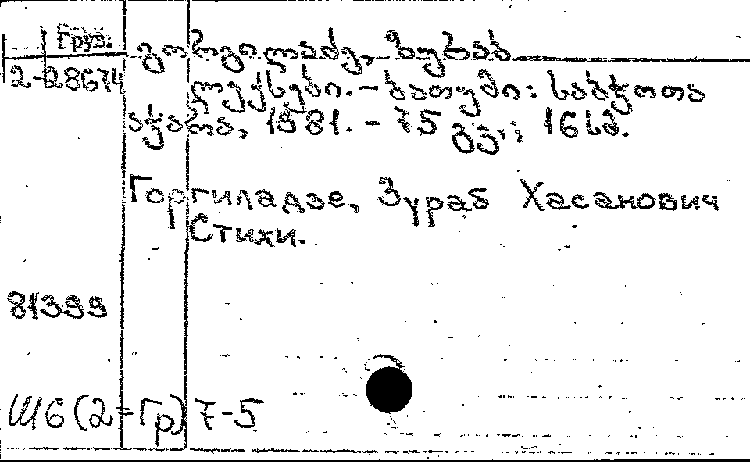 Груз.
2-28674
გორგილაძე, ზურაბ
ლექსები. - ბათუმი: საბჭოთა
აჭარა, 1981. - 75 გვ.; 16 სმ.
Горгиладзе, Зураб Хасанович
Стихи.
81399
Ш6(2=Гр)7-5